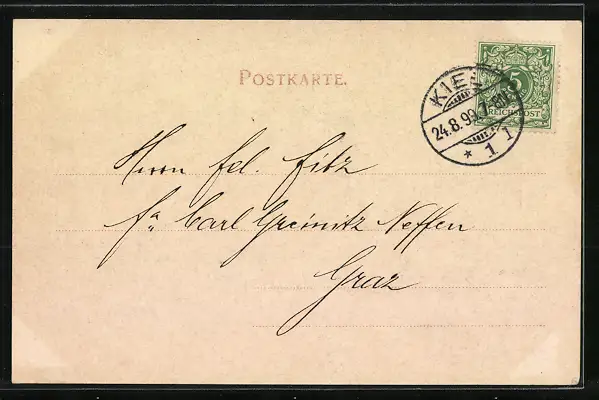 POSTKARTE.
5
REICHSPOST
KIEL
24.8.99.7-8N.
* 1 1
Herrn Fel. Fitz
Fa. Carl Greinitz Neffen
Graz